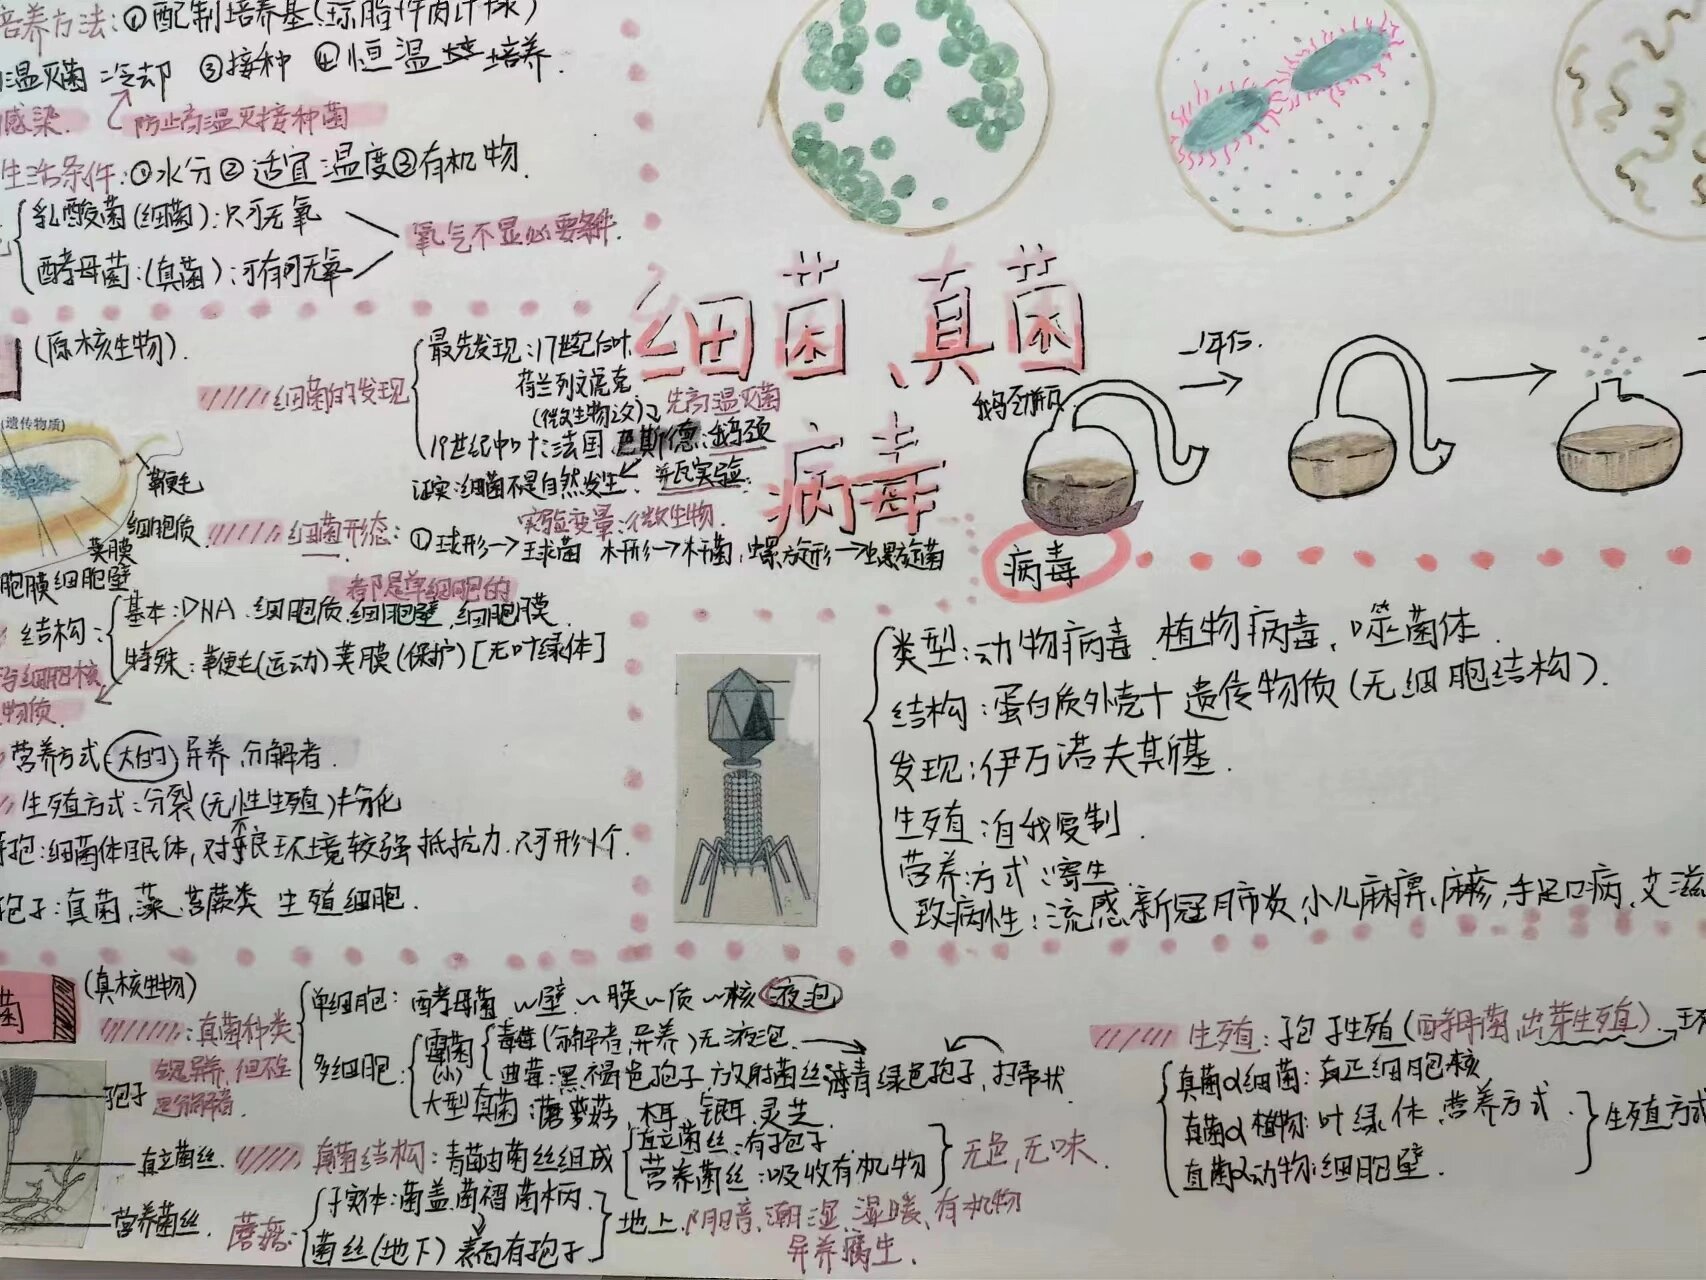 培养方法:①配制培养基(琼脂+牛肉汁球)
温灭菌 冷却 ③接种 ④恒温 培养.
感染. 防止高温灭接种菌
生活条件:①水分②适宜温度③有机物.
乳酸菌(细菌):只可无氧
酵母菌:(真菌):可有可无氧
氧气不是必要条件.
细菌、真菌
病毒
(原核生物).
细菌的发现
最先发现:17世纪后叶
荷兰列文虎克
(微生物之父)
先高温灭菌
19世纪中叶:法国 巴斯德:鹅颈
证实:细菌不是自然发生. 瓶实验.
实验变量:微生物.
鹅颈瓶
1年后.
(遗传物质)
鞭毛
细胞质
荚膜
胞膜 细胞壁
细菌形态:①球形→球菌 杆形→杆菌,螺旋形→螺旋菌
都是单细胞的
结构:
基本:DNA.细胞质.细胞壁.细胞膜.
特殊:鞭毛(运动)荚膜(保护)[无叶绿体]
与细胞核
物质.
营养方式(大的)异养.分解者.
生殖方式:分裂(无性生殖)
孢:细菌休眠体,对不良环境较强抵抗力.只可形1个.
孢子:真菌、藻、苔蕨类 生殖细胞.
病毒
类型:动物病毒.植物病毒,噬菌体.
结构:蛋白质外壳+遗传物质(无细胞结构).
发现:伊万诺夫斯基.
生殖:自我复制.
营养方式:寄生.
致病性:流感,新冠肺炎,小儿麻痹,麻疹,手足口病,艾滋
菌
(真核生物)
:真菌种类
异养,但不
是分解者.
单细胞: 酵母菌 ~壁~膜~质~核 液泡
多细胞:
霉菌
(小)
青霉(分解者,异养)无液泡.
曲霉:黑.褐色孢子,放射菌丝 青绿色孢子,扫帚状
大型真菌:蘑菇,木耳,银耳,灵芝.
孢子
直立菌丝.
营养菌丝.
真菌结构:青菌由菌丝组成
直立菌丝:有孢子
营养菌丝:吸收有机物
无色,无味.
蘑菇:
子实体:菌盖菌褶菌柄.
菌丝(地下) 表面有孢子
地上.阴暗,潮湿.温暖,有机物
异养腐生.
生殖:孢子生殖(酵母菌,出芽生殖).
真菌α细菌:真正细胞核
真菌α植物:叶绿体.营养方式.
真菌α动物:细胞壁.
生殖方式